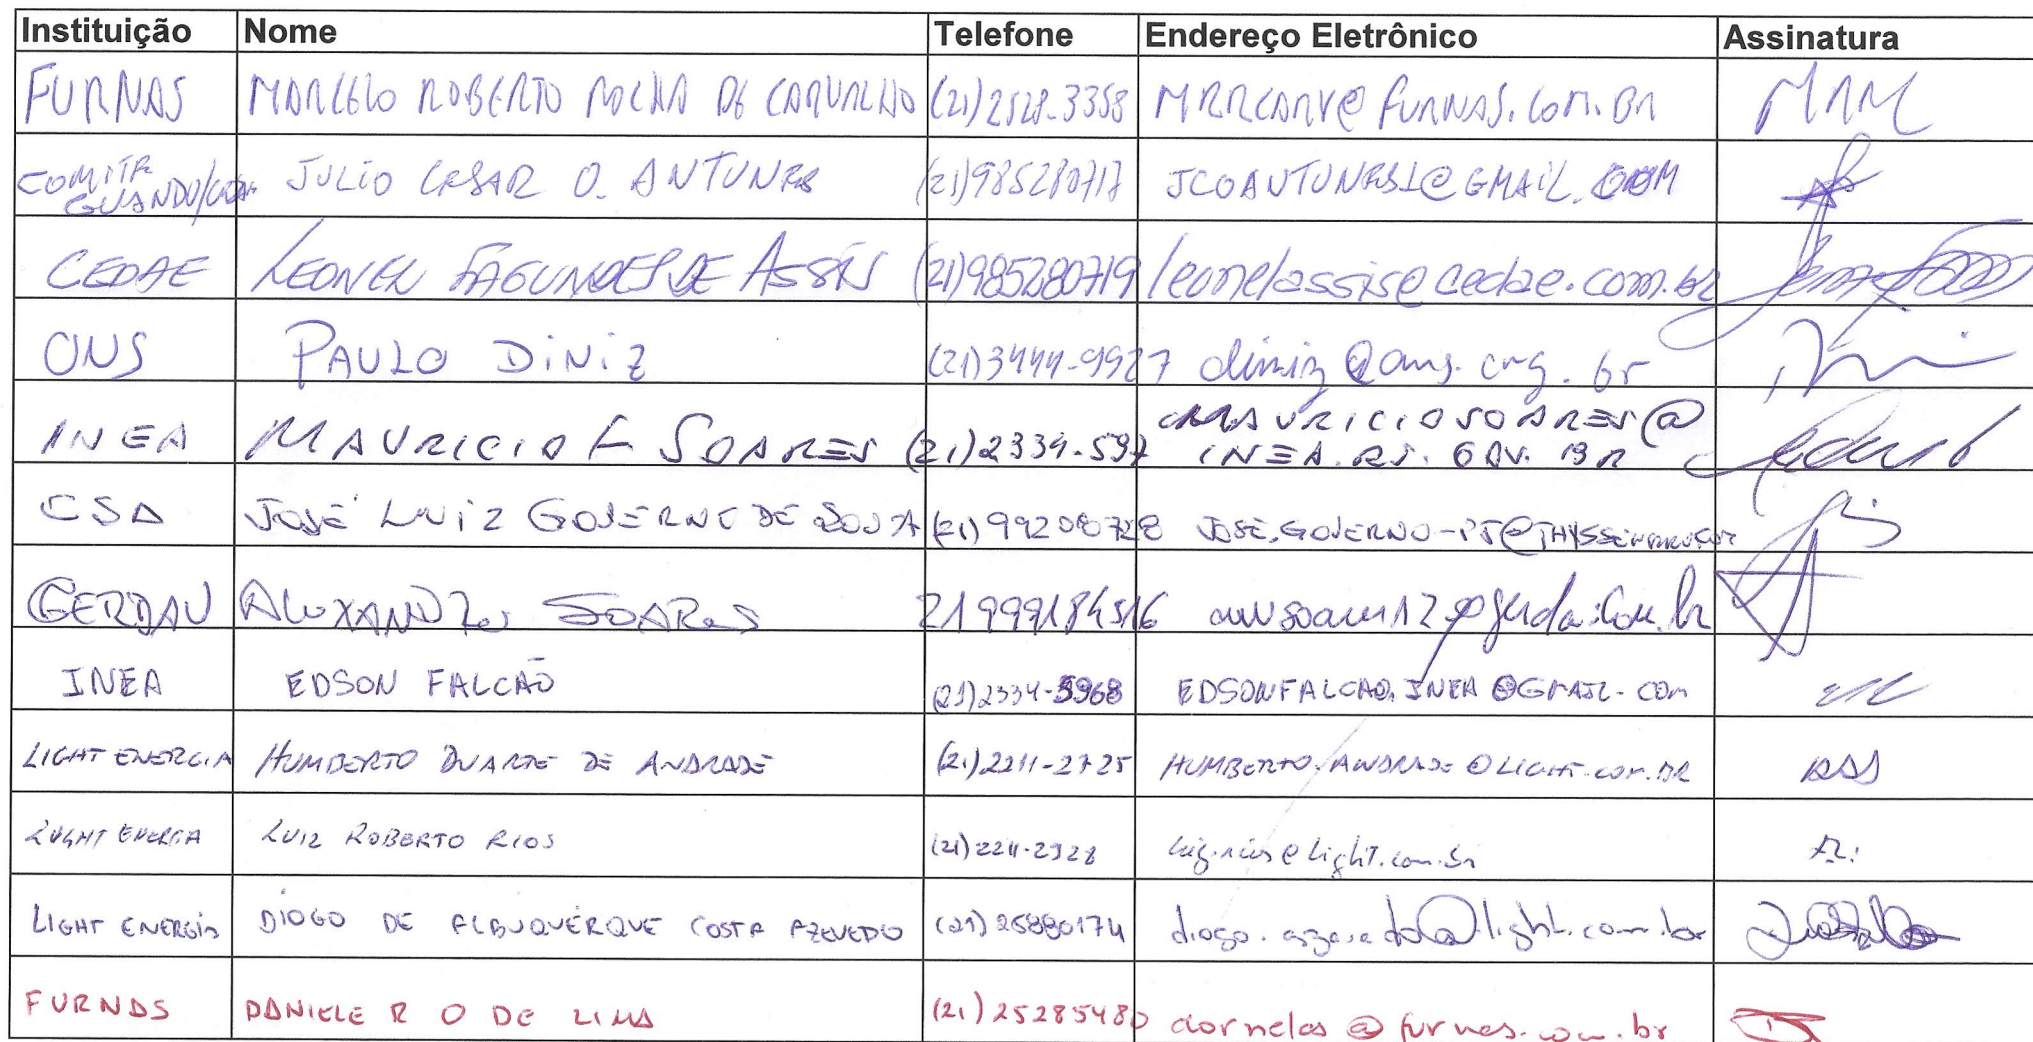 Instituição Nome Telefone Endereço Eletrônico Assinatura
FURNAS MARCELO ROBERTO ROCHA DE CARVALHO (21)2528-3358 MRRCARV@FURNAS.COM.BR
COMITÊ GUANDU JULIO CESAR O. ANTUNES (21)985280717 JCOANTUNES1@GMAIL.COM
CEDAE LEONEL FAGUNDES DE ASSIS (21)985280719 leonelassis@cedae.com.br
ONS PAULO DINIZ (21)3444-9927 diniz@ons.org.br
INEA MAURICIO F SOARES (21)2334-597 MAURICIOSOARES@
INEA.RJ.GOV.BR
CSA JOSÉ LUIZ GOVERNO DE SOUZA (21)99208728
GERDAU ALEXANDRE SOARES 21 999184516
INEA EDSON FALCÃO (21)2334-5968 EDSONFALCAO.INEA@GMAIL.COM
LIGHT ENERGIA HUMBERTO DUARTE DE ANDRADE (21)2211-2725 HUMBERTO.ANDRADE@LIGHT.COM.BR
LIGHT ENERGIA LUIZ ROBERTO RIOS (21)2211-2928 luiz.rios@light.com.br
LIGHT ENERGIA DIOGO DE ALBUQUERQUE COSTA AZEVEDO (21)25880174 diogo.azevedo@light.com.br
FURNAS DANIELE R O DE LIMA (21)25285480 dornelas@furnas.com.br